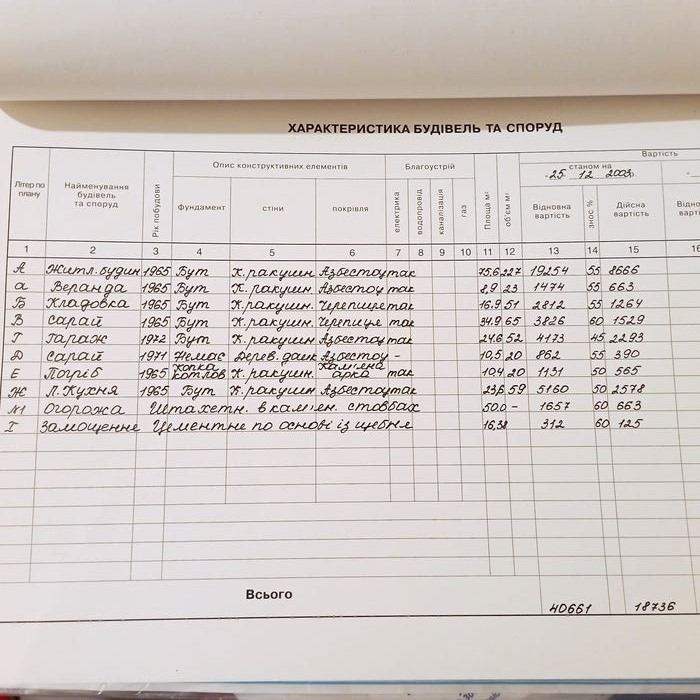 ХАРАКТЕРИСТИКА БУДІВЕЛЬ ТА СПОРУД
Літер по плану Найменування будівель та споруд Рік побудови Опис конструктивних елементів Благоустрій Площа м² об'єм м³ Вартість
станом на
25 12 2003
фундамент стіни покрівля електрика водопровід каналізація газ Відновна вартість знос % Дійсна вартість
1 2 3 4 5 6 7 8 9 10 11 12 13 14 15 16
А Житл. будин 1965 Бут К. ракушн Азбестоц так 75,6 227 19254 55 8666
а Веранда 1965 Бут К. ракушн. Азбестоц так 8,9 23 1474 55 663
Б Кладовка 1965 Бут К. ракушн. Черепице так 16.9 51 2812 55 1264
В Сарай 1965 Бут К. ракушн. Черепиця так 34.9 65 3826 60 1529
Г Гараж 1972 Бут К. ракушн Азбестоц так 24.6 52 4173 45 2293
Д Сарай 1971 Немає Дерев. дошк Азбестоц - 10,5 20 862 55 390
Е Погріб 1965 копка котлов К. ракушн. кам'яна арка так 10.4 20 1131 50 565
Ж Л. Кухня 1965 Бут К. ракушн Азбестоц так 23,6 59 5160 50 2578
№1 Огорожа Штахетн. в кам'ян. стовбах 50.0 - 1657 60 663
I Замощенне Цементне по основі із щебня 16,38 312 60 125
Всього 40661 18736